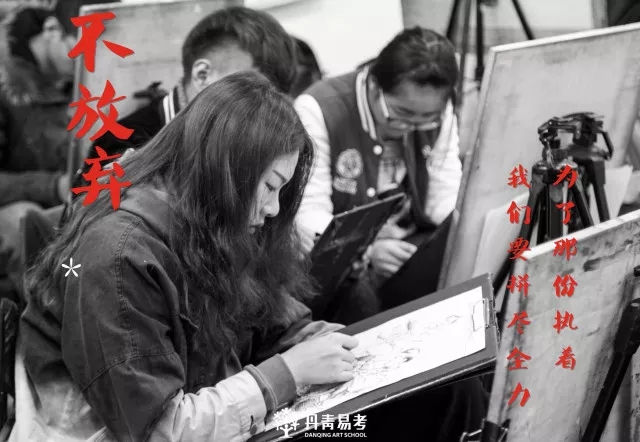 不放弃
*
为了那份执着
我们要拼尽全力
丹青易考
DANQING ART SCHOOL